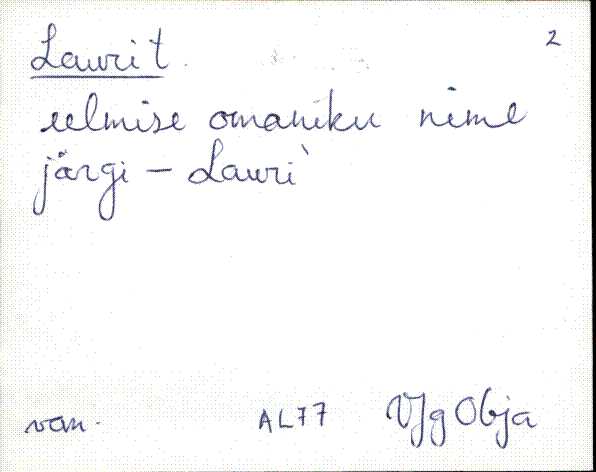 Laurit 2
eelmise omaniku nime
järgi – Lauri`
van. AL77 VJg Obja